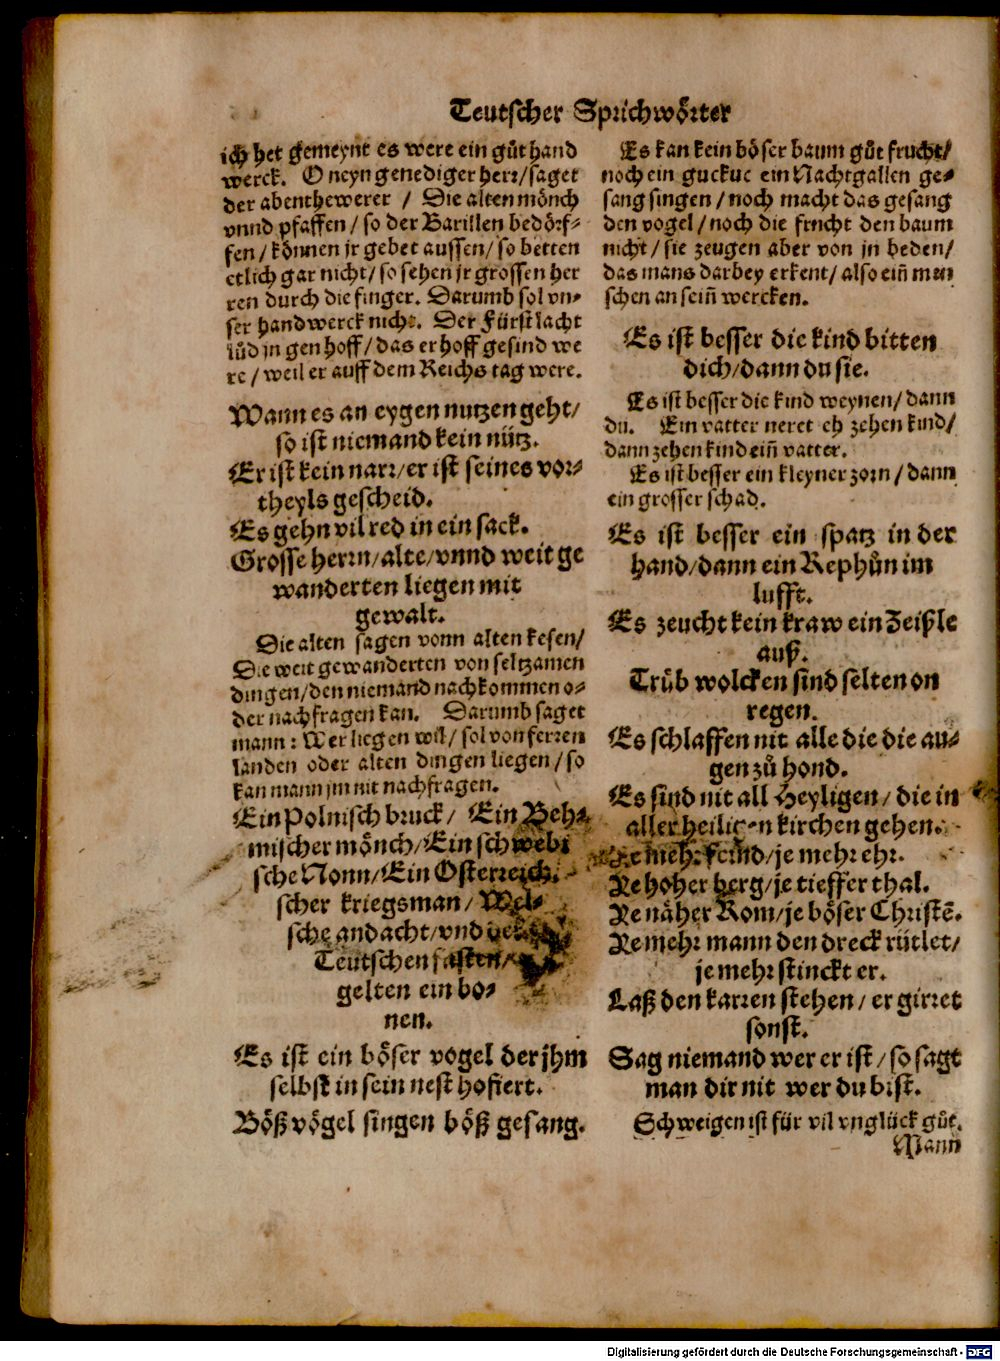 Teutscher Sprichwörter
ich het gemeynt es were ein gůt hand
werck. O neyn genediger herr/saget
der abenthewerer / Die alten mönch
vnnd pfaffen / so der Barillen bedörf-
fen / können jr gebet aussen/ so betten
etlich gar nicht/ so sehen jr grossen her
ren durch die finger. Darumb sol vn-
ser handwerck nicht. Der Fürst lacht
lůd jn gen hoff / das er hoff gesind we
re / weil er auff dem Reichs tag were.
Wann es an eygen nutzen geht/
so ist niemand kein nütz.
Er ist kein narr/er ist seines vor-
theyls gescheid.
Es gehn vil red in ein sack.
Grosse herrn/alte/vnnd weit ge
wanderten liegen mit
gewalt.
Die alten sagen vonn alten kesen/
Die weit gewanderten von seltzamen
dingen/den niemand nachkommen o-
der nachfragen kan. Darumb saget
mann: Wer liegen wil/ sol von ferren
landen oder alten dingen liegen / so
kan mann jm nit nachfragen.
Ein Polnisch bruck/ Ein Beh-
mischer mönch/Ein schwebi
sche Nonn/Ein Osterreich.
scher kriegsman/ Wel-
sche andacht/vnd
Teutschen fasten/
gelten ein bo-
nen.
Es ist ein böser vogel der jhm
selbst in sein nest hofiert.
Böß vögel singen böß gesang.
Es kan kein böser baum gůt frucht/
noch ein guckuc ein Nachtgallen ge-
sang singen / noch macht das gesang
den vogel / noch die frucht den baum
nicht / sie zeugen aber von jn beden/
das mans darbey erkent/ also ein̄ men
schen an sein̄ wercken.
Es ist besser die kind bitten
dich/dann du sie.
Es ist besser die kind weynen/ dann
du. Ein vatter neret eh zehen kind/
dann zehen kind ein̄ vatter.
Es ist besser ein kleyner zorn / dann
ein grosser schad.
Es ist besser ein spatz in der
hand/dann ein Rephůn im
lufft.
Es zeucht kein kraw ein Zeißle
auß.
Trůb wolcken sind selten on
regen.
Es schlaffen nit alle die die au-
gen zů hond.
Es sind nit all Heyligen/ die in
aller heiligen kirchen gehen.
Je mehr feind/je mehr ehr.
Je hoher berg/je tieffer thal.
Je näher Rom/je böser Christē.
Je mehr mann den dreck rütlet/
je mehr stinckt er.
Laß den karren stehen/ er girret
sonst.
Sag niemand wer er ist/so sagt
man dir nit wer du bist.
Schweigen ist für vil vnglück gůt.
Mann
Digitalisierung gefördert durch die Deutsche Forschungsgemeinschaft - DFG